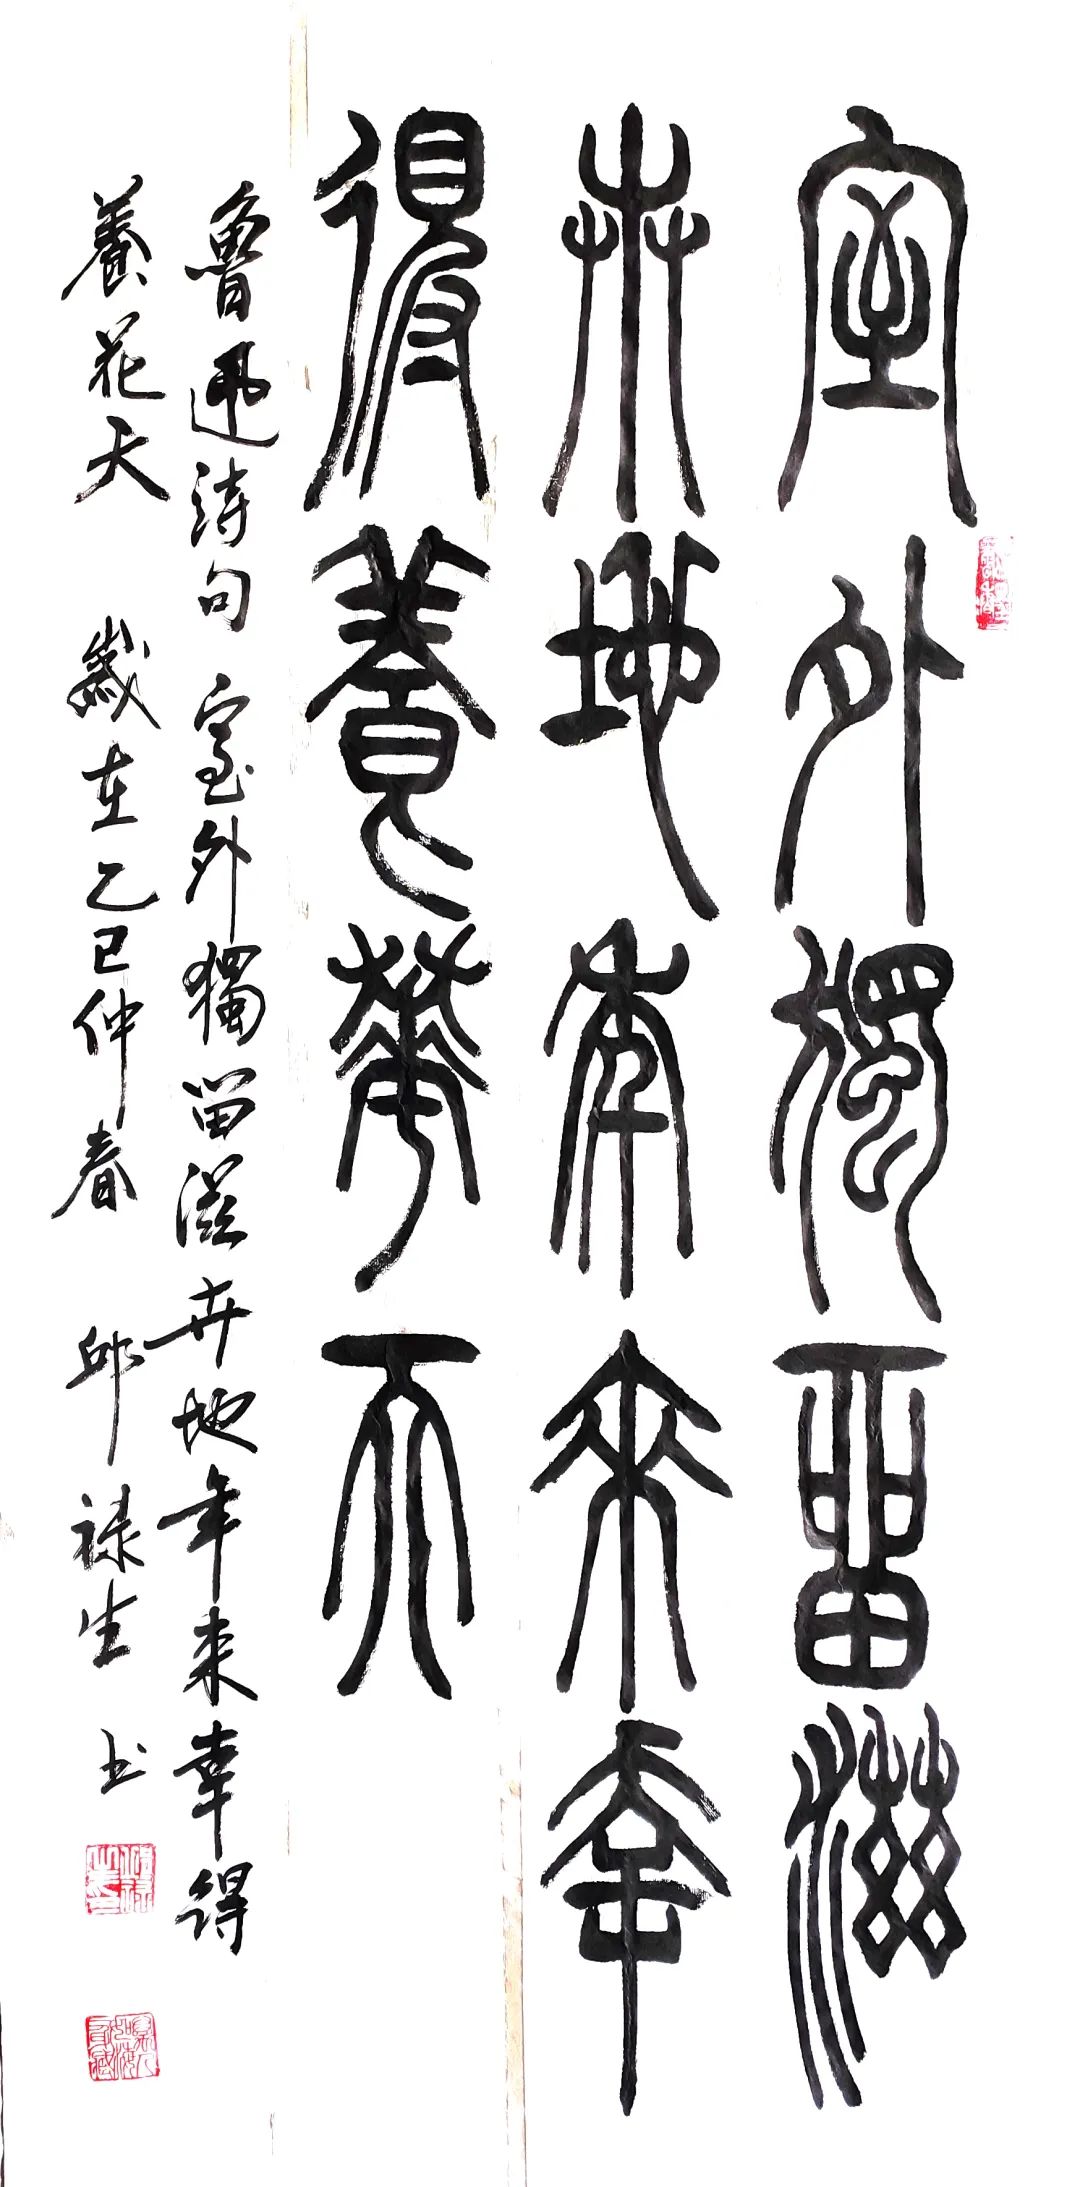 室外獨畱滋
卉地年來幸
得養華天
魯迅詩句 室外獨留滋卉地年来幸得
養花天 歲在乙巳仲春 邱禄生 书